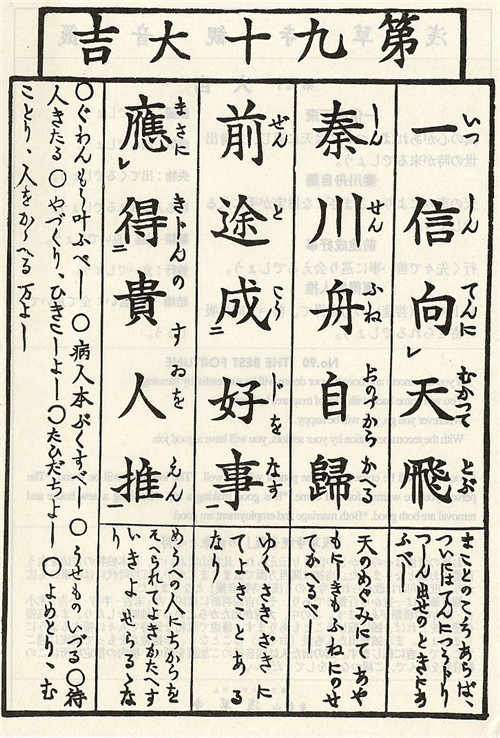 第九十大吉
一信向天飛
いつしんてんにむかつてとぶ
まことのこころあらば、
ついにはてんにつうじり
つしん出せのときにあ
ふべし
秦川舟自歸
しんせんふねおのづからかへる
天のめぐみにてあや
うきもふねにのせ
てかへるべし
前途成好事
ぜんとこうじをなす
ゆくさきざきに
てよきことある
なり
應得貴人推
まさにきじんのすゐをえん
めうへの人にちからを
そへられてよきかたへす
いきよせらるるな
り
○ぐわんもう叶ふべし ○病人本ぶくすべし ○うせものいづる ○待
人きたる ○やづくり、ひきこしよし ○たびだちよし ○よめとり、む
ことり、人をかゝへる万よし